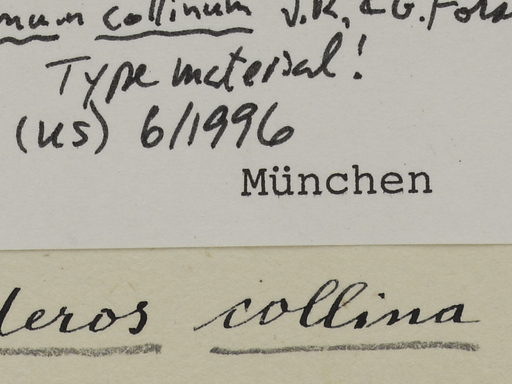 collinum J.R. & G. Fors
Type material!
(US) 6/1996
München
deros collina